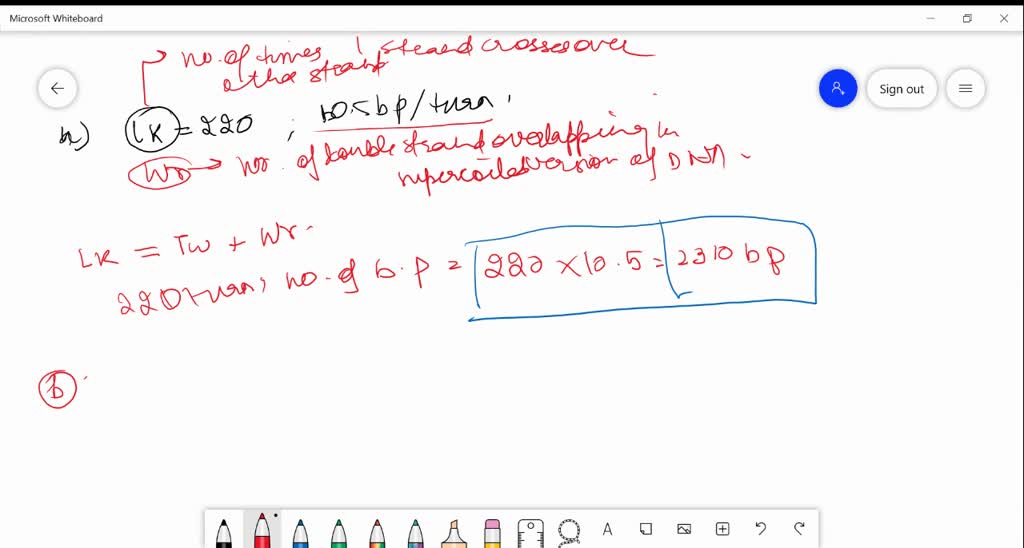 Microsoft Whiteboard
no. of times 1 strand crossover
other strand
Sign out
a) LK = 220 ; 10.5 bp/turn,
Wr → no. of double strand overlapping in
supercoiled version of DNA
LK = Tw + Wr
220 turn, no. of b.p = 220 × 10.5 = 2310 bp
b
A